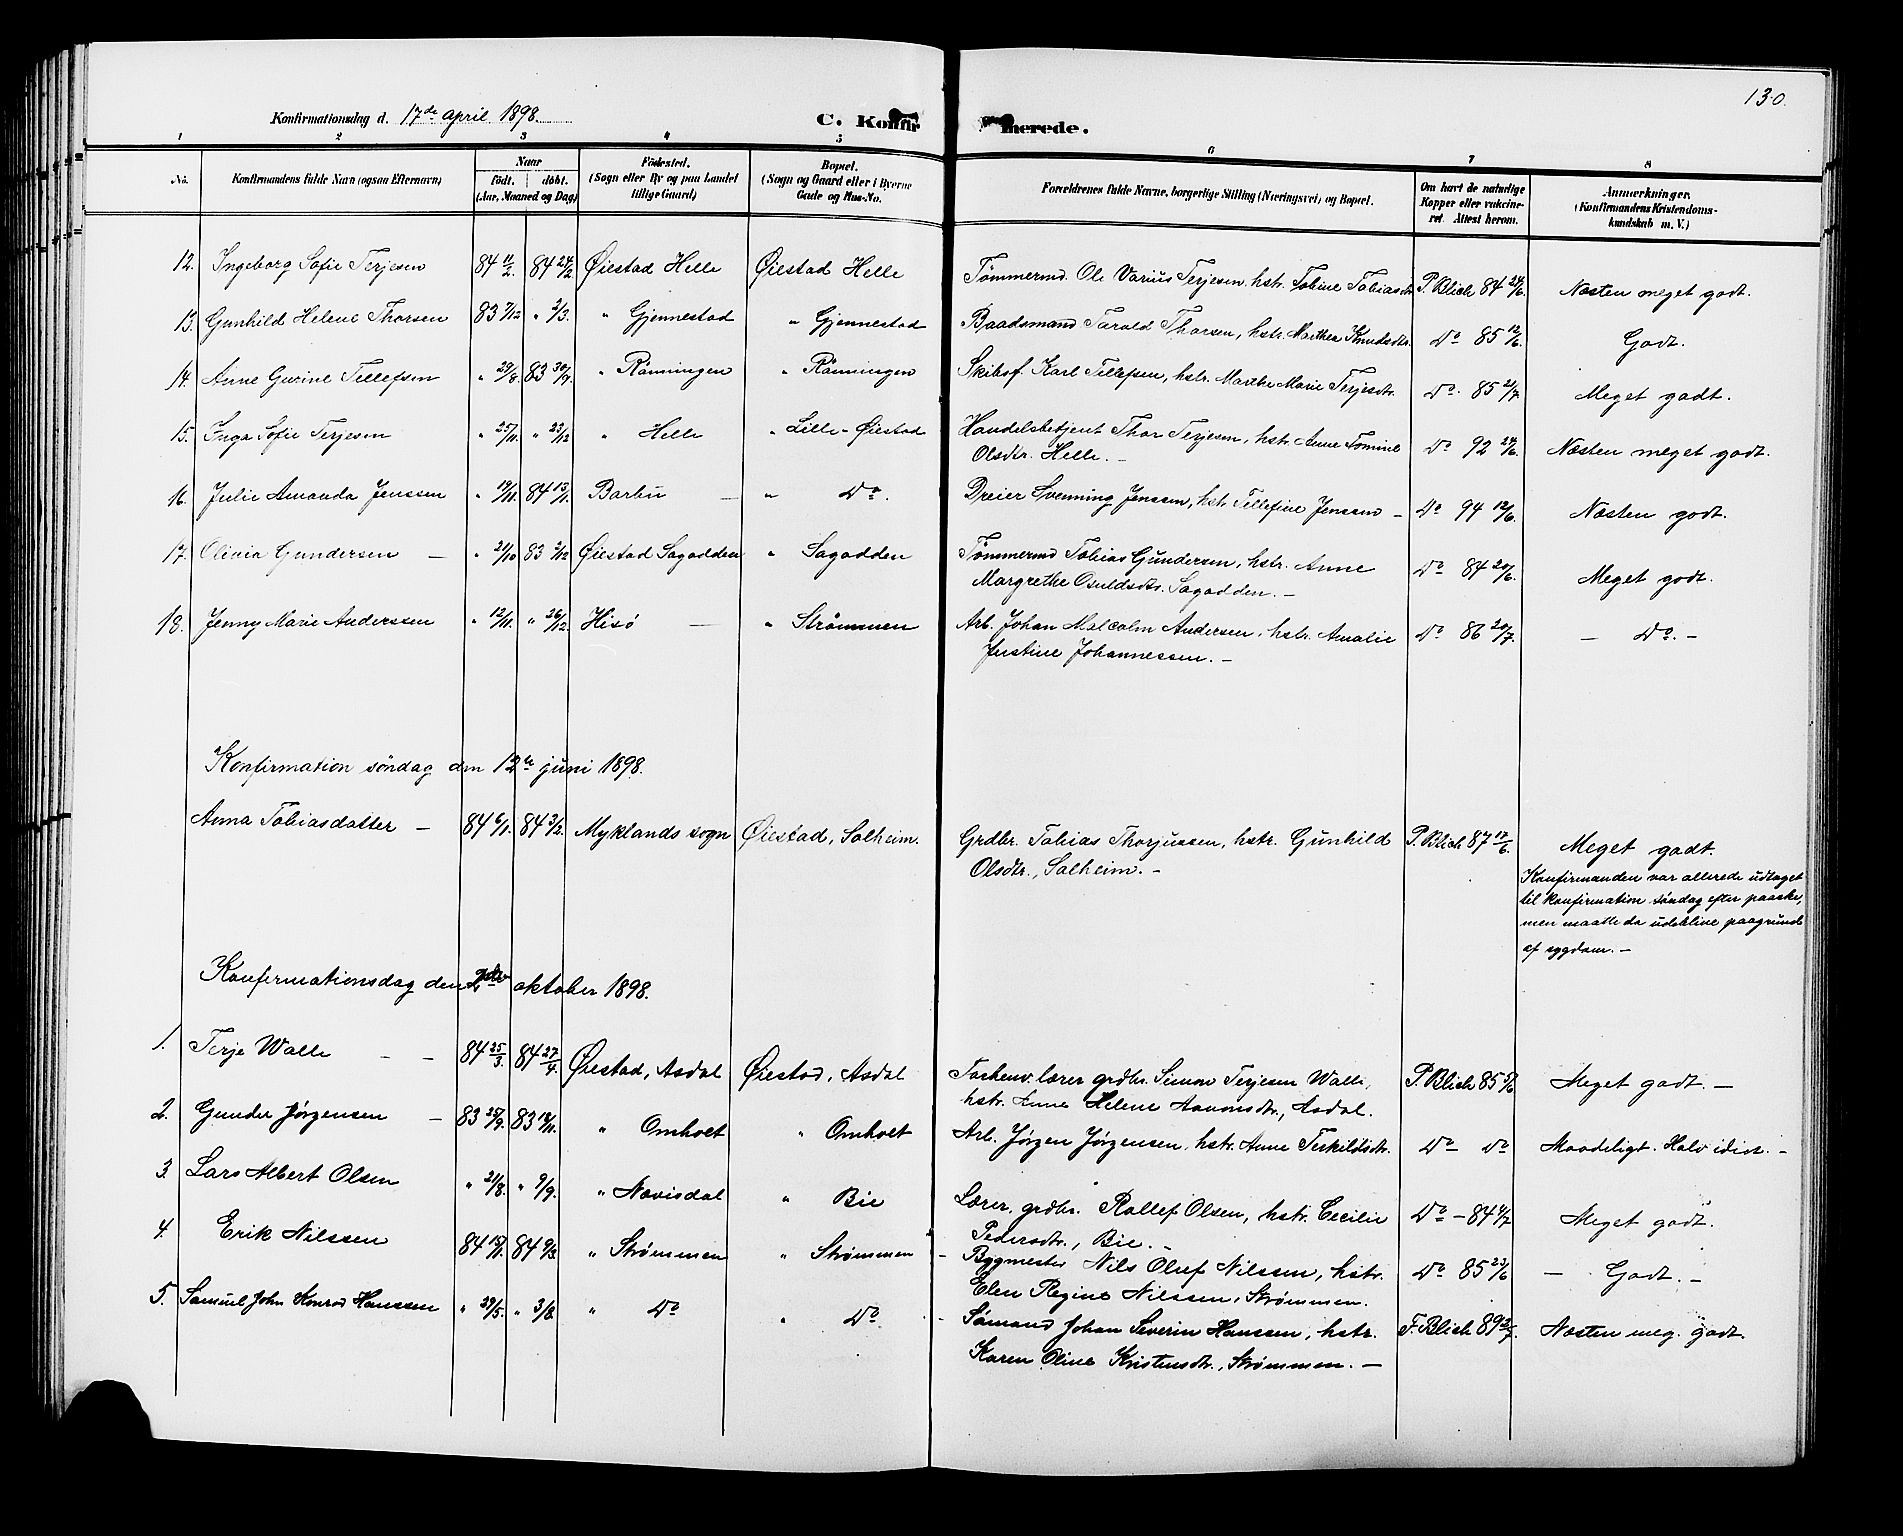 130.
Konfirmationsdag d. 17de april 1898. C. Konfirmerede.
1 2 3 4 5 6 7 8
No. Konfirmandens fulde Navn (ogsaa Efternavn) Naar født. døbt. (Aar, Maaned og Dag) Fødested. (Sogn eller By og paa Landet tillige Gaard) Bopæl. (Sogn og Gaard eller i Byerne Gade og Hus-No. Forældrenes fulde Navne, borgerlige Stilling (Næringsvei) og Bopæl. Om havt de naturlige Kopper eller vakcineret. Attest herom. Anmærkninger. (Konfirmandens Kristendomskundskab m. V.)
12. Ingeborg Sofie Terjesen 84 11/2. 84 24/2 Øiestad Helle Øiestad Helle Tømmermd. Ole Varius Terjesen, hstr. Tobine Tobiasdtr P. Blich 84 24/6. Næsten meget godt.
13. Gunhild Helene Thorsen 83 7/12 " 2/3. " Gjennestad " Gjennestad Baadsmand Tarald Thorsen, hstr. Marthea Knudsdtr. Do 85 12/6. Godt.
14. Anne Gurine Tellefsen " 29/8. 83 30/9. " Rønningen " Rønningen Skibsf. Karl Tellefsen, hstr. Marthe Marie Terjesdtr. Do. 85 2/7. Meget godt.
15. Inga Sofie Terjesen " 25/11. " 23/12 " Helle " Lille-Øiestad Handelsbetjent Thor Terjesen, hstr. Anne Tomine
Olsdtr. Helle. – Do 92 24/6. Næsten meget godt.
16. Julie Amanda Jenssen " 19/11. 84 13/1. Barbu — " Do. Dreier Svenning Jenssen, hstr. Tellefine Jenssen – Do 94 12/6. Næsten godt.
17. Olivia Gundersen — " 21/10 83 2/12 Øiestad Sagadden " Sagadden Tømmermd Tobias Gundersen, hstr. Anne
Margrethe Osuldsdtr. Sagadden. – Do 84 20/6. Meget godt.
18. Jenny Marie Anderssen " 12/11. " 26/12. Hisø — " Strømmen Arb. Johan Malcolm Andersen, hstr. Amalie
Justine Johannessen. – Do 86 20/7. – Do. –
Konfirmation søndag den 12te juni 1898.
Anna Tobiasdatter – 84 6/1. 84 3/2. Myklands sogn Øiestad, Solheim. Grdbr. Tobias Thorjussen, hstr. Gunhild
Olsdtr., Solheim. – P. Blich 87 17/6. Meget godt.
Konfirmanden var allerede udtaget
til konfirmation søndag efter paaske,
men maatte da udeblive paagrund
af sygdom. –
Konfirmationsdag den oktober 1898.
1. Terje Walle – – 84 25/3. 84 27/4. Øiestad, Asdal Øiestad, Asdal lærer grdbr. Simon Terjesen Walle,
hstr. Anne Helene Aavonsdtr., Asdal. P. Blich 85 5/6 Meget godt. –
2. Gunder Jørgensen – 83 25/9. 83 18/11. " Omholt " Omholt Arb. Jørgen Jørgensen, hstr. Anne Terkildsdtr. Do – Do Maadeligt. Halv idiot. –
3. Lars Albert Olsen " 21/8. " 9/9. " Nævisdal " Bie Lærer, grdbr. Rollef Olsen, hstr. Cecilie
Pedersdtr., Bie. – Do – 84 4/7 Meget godt.
4. Erik Nilssen 84 18/1. 84 9/3. " Strømmen " Strømmen – Bygmester Nils Oluf Nilssen, hstr.
Elen Regine Nilssen, Strømmen. Do 85 23/6 – Godt. –
5. Samuel John Konrad Hanssen " 29/5. " 3/8. " Do " Do. – Sømand Johan Severin Hanssen, hstr.
Karen Oline Kristensdtr., Strømmen. – F. Blich 89 2/7. Næsten meg. godt.